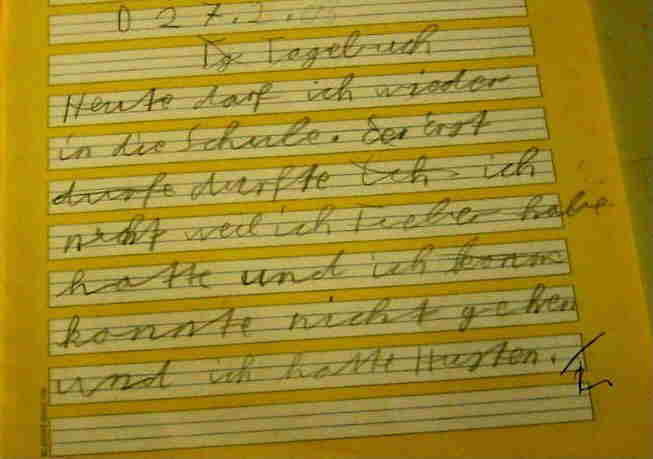 D 27.2.
Tagebuch
Heute darf ich wieder
in die Schule. Der
durfte durfte ich ich
nicht weil ich Fieber habe
hatte und ich konn
konnte nicht gehen
und ich hatte Husten.